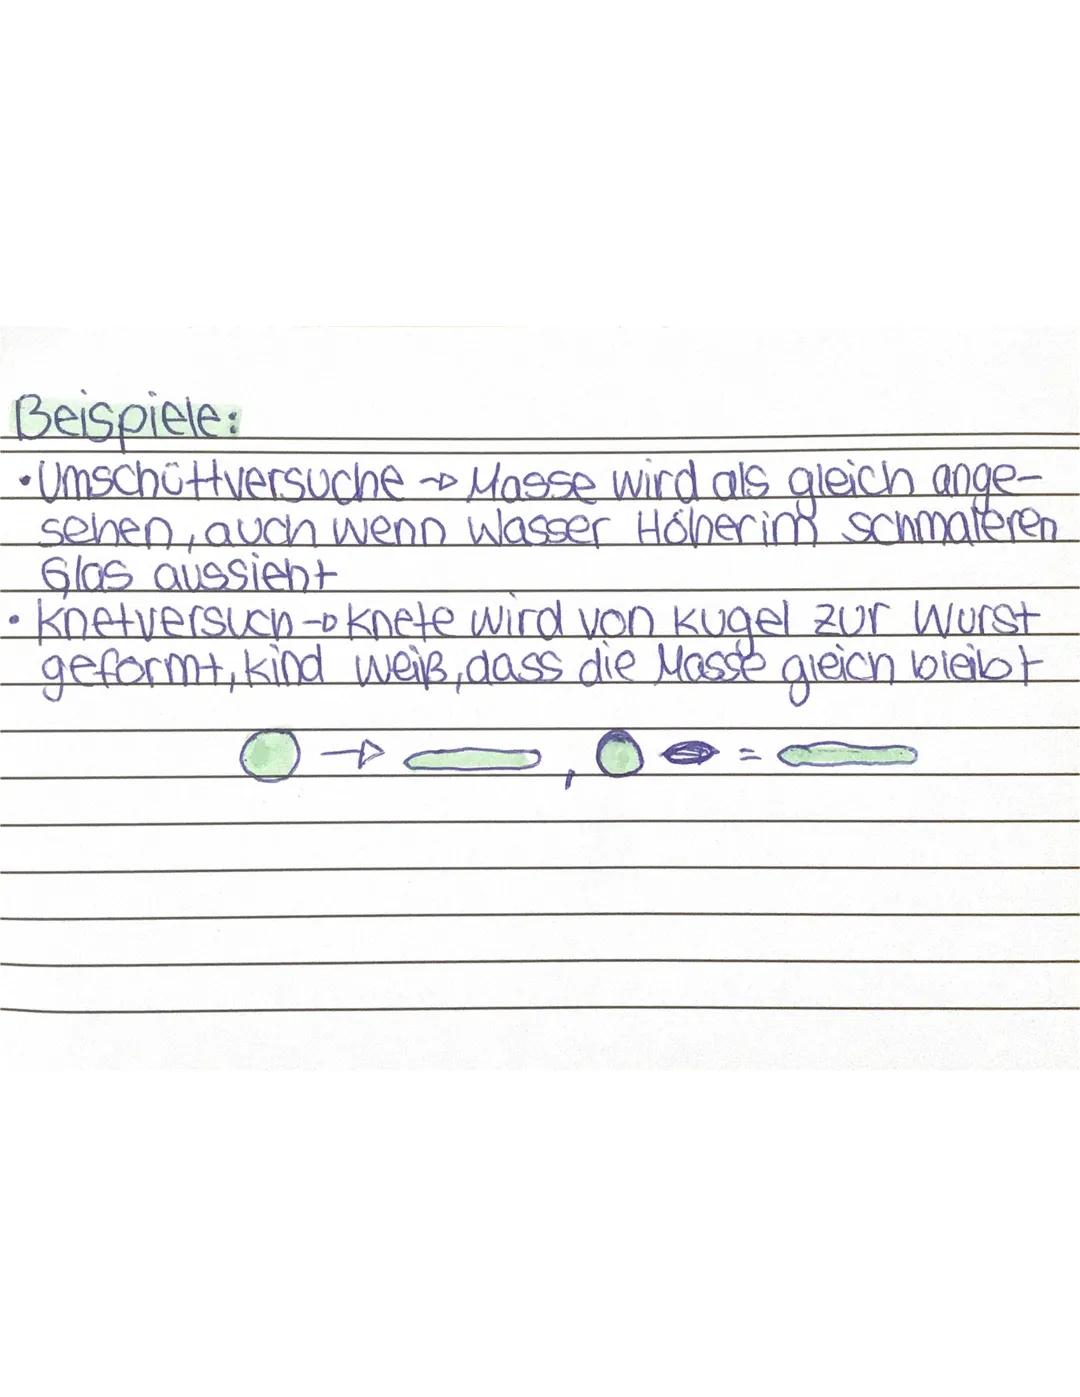 Beispiele:
• Umschüttversuche → Masse wird als gleich ange-
sehen, auch wenn Wasser Höher im schmaleren
Glas aussieht
• Knetversuch → Knete wird von Kugel zur Wurst
geformt, Kind weiß, dass die Masse gleich bleibt
→ , =